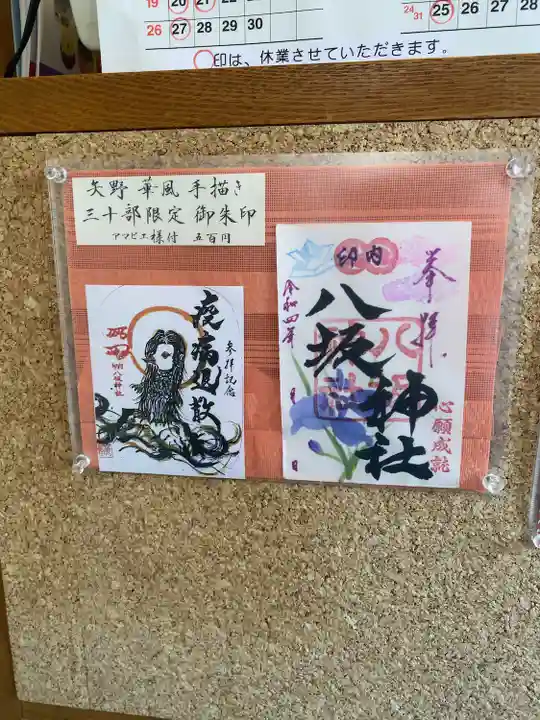 19 20 21 22 23 24 25
26 27 28 29 30
24/31 25 26 27 28
○印は、休業させていただきます。
矢野 華風 手描き
三十部限定 御朱印
アマビエ様付 五百円
疫病退散
参拝記念
八坂神社
奉拝
印内
八坂神社
令和四年 月 日
心願成就